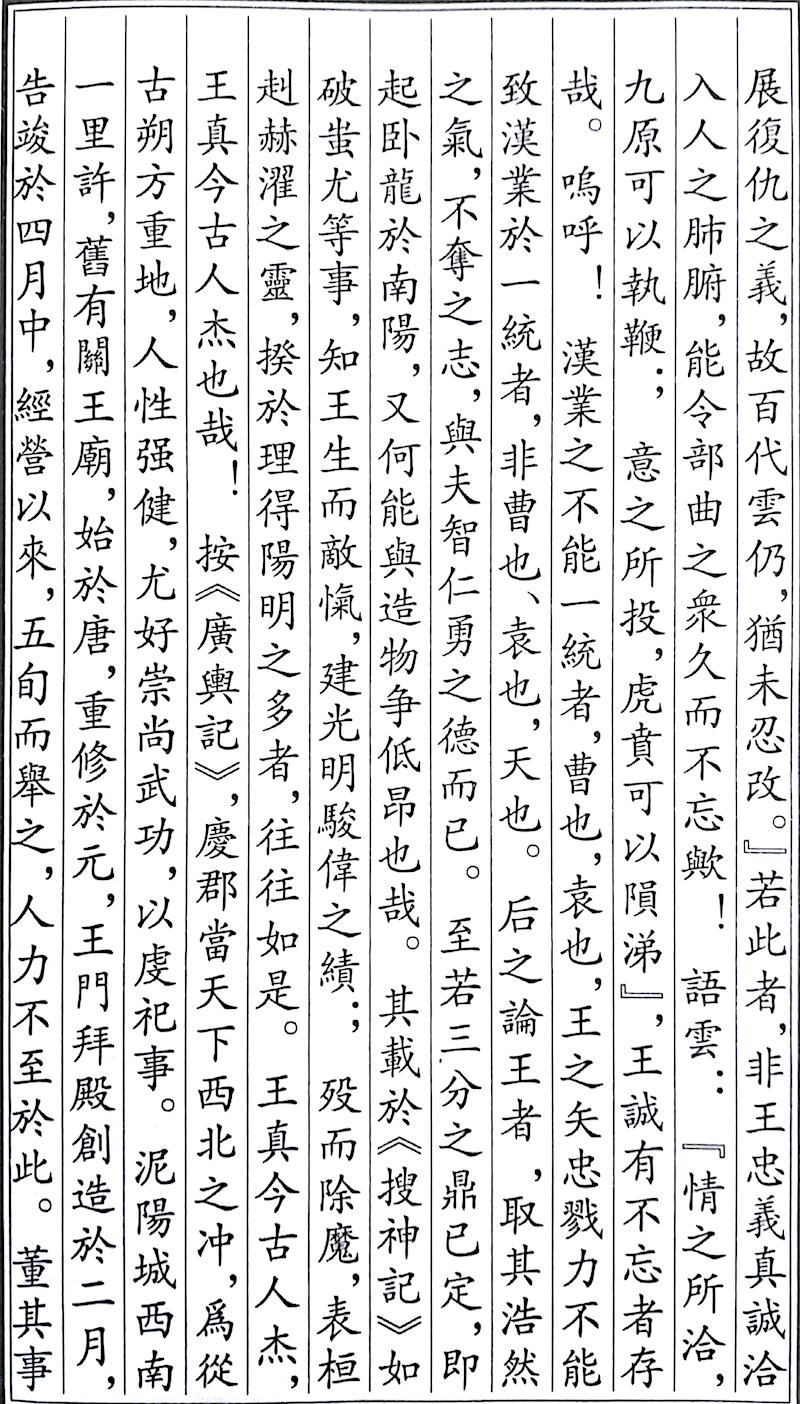 展復仇之義，故百代雲仍，猶未忍改。』若此者，非王忠義真誠洽
入人之肺腑，能令部曲之衆久而不忘歟！語雲：『情之所洽，
九原可以執鞭；意之所投，虎賁可以隕涕』，王誠有不忘者存
哉。嗚呼！漢業之不能一統者，曹也，袁也，王之矢忠戮力不能
致漢業於一統者，非曹也、袁也，天也。后之論王者，取其浩然
之氣，不奪之志，與夫智仁勇之德而已。至若三分之鼎已定，即
起卧龍於南陽，又何能與造物争低昂也哉。其載於《搜神記》如
破蚩尤等事，知王生而敵愾，建光明駿偉之績；殁而除魔，表桓
赳赫濯之靈，揆於理得陽明之多者，往往如是。王真今古人杰，
王真今古人杰也哉！按《廣輿記》，慶郡當天下西北之冲，爲從
古朔方重地，人性强健，尤好崇尚武功，以虔祀事。泥陽城西南
一里許，舊有關王廟，始於唐，重修於元，王門拜殿創造於二月，
告竣於四月中，經營以來，五旬而舉之，人力不至於此。董其事